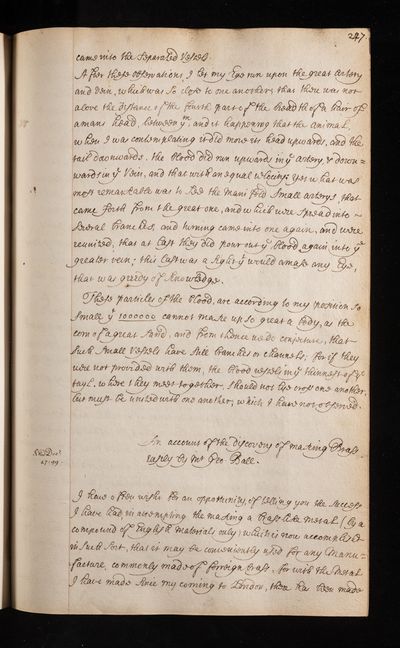 247.
came into the separated vessel.
After these observations, I let my Eye run upon the great artery
and vein, which was so close to one another, that there was not
above the distance of the fourth part of the breadth of a hair of
a mans head, between ym, and it happening that the animal,
when I was contemplating it did move its head upwards, and the
tail downwards. the blood did run upwards in ye artery, & down=
wards in ye Vein, and that with an equal velocity: yet what was
most remarkable was to see the manifold small arterys, that
came forth from the great one, and which were spread into
several branches, and turning came into one again, and were
reunited, that at last they did pour out ye blood again into ye
greater vein; this last was a sight yt would amaze any Eye,
that was greedy of knowledge.
These particles of the blood, are according to my position so
small yt 1000000 cannot make up so great a body, as the
corn of a great sand, and from thence we do conjecture, that
such small vessels have still branches or channels; for if they
were not provided with them, the blood vessels in ye thinness of ye
tayl, where they meet together, should not lye cross one another,
but must be united with one another; which I have not observed.
An account of the discovery of making Brass
easily by Mr Geo Ball.
I have often wisht for an opportunity of telling you the success
I have had in attempting the making a brass like metal (by a
compound of English materials only) which is now accomplished
in such sort, that it may be conveniently used for any manu=
facture, commonly made of foreign brass. for with the metal
I have made since my coming to London, there has been made